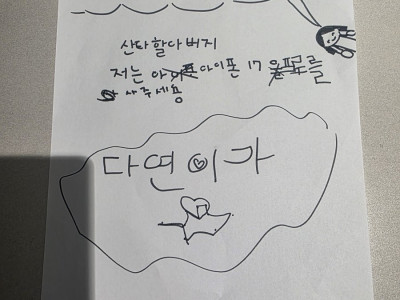 산타할다버지
저는 아이폰 17 을
사주세용
다연이가